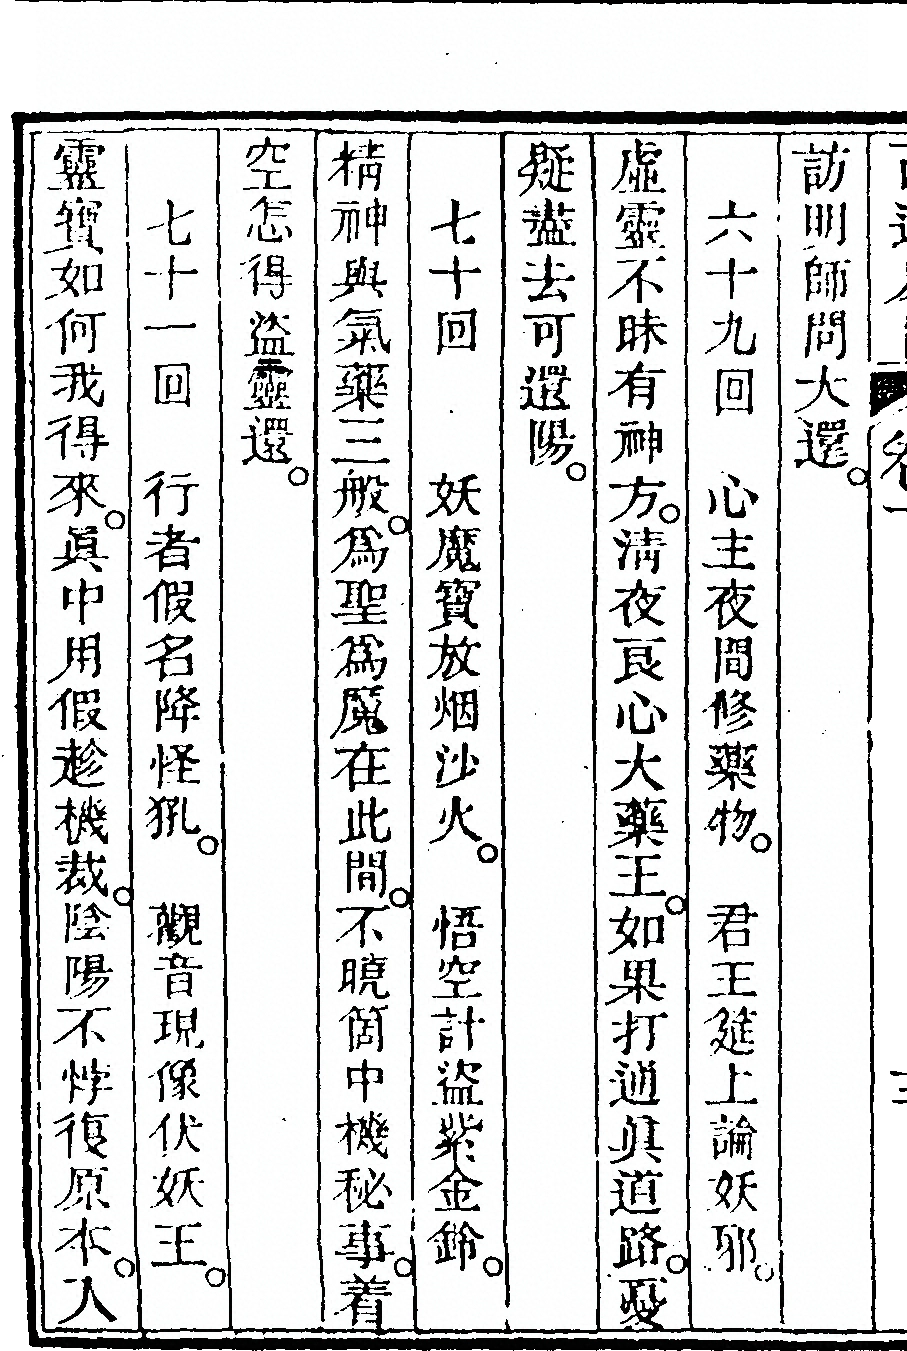 訪明師問大還。
六十九回　心主夜間修藥物。　君王筵上論妖邪。
虛靈不昧有神方。淸夜良心大藥王。如果打通眞道路。憂
疑盡去可還陽。
七十回　妖魔寶放烟沙火。　悟空計盜紫金鈴。
精神與氣藥三般。爲聖爲魔在此間。不曉箇中機秘事。着
空怎得盜靈還。
七十一回　行者假名降怪犼。　觀音現像伏妖王。
靈寶如何我得來。眞中用假趁機裁。陰陽不悖復原本。人